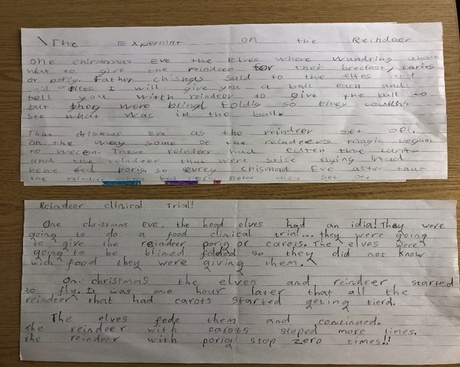 The Expermint on the Reindeer
One chirstmas Eve the Elves where wundring about
what to give the reindeer for their brecfast, carits
or porig. Father chismas said to the elfes just
I will give you a ball each and
tell you witch reindeer to give the ball to
but they were blind folds so they couldn't
see what was in the balls.
That chrismas Eve as the reindeer set off.
on the way some of the reindeers magic began
to These reindeer had eaten the carits
and the reindeer that were still flying had
porig. so evrey chismas Eve after that
the reindeer
Reindeer clinical Trial!
One christmas eve, the head elves had an idia! They were
going to do a food clinical trial... they were going
to give the reindeer porig or carots. The elves were
going to be blined folded so they did not know
wich food they were giving them.
On christmas the elves and reindeer started
to fly. It was one hour later that all the
reindeer that had carots started geting tierd.
The elves fede them and continued.
the reindeer with carots stoped more times.
the reindeer with porig stop zero times!!